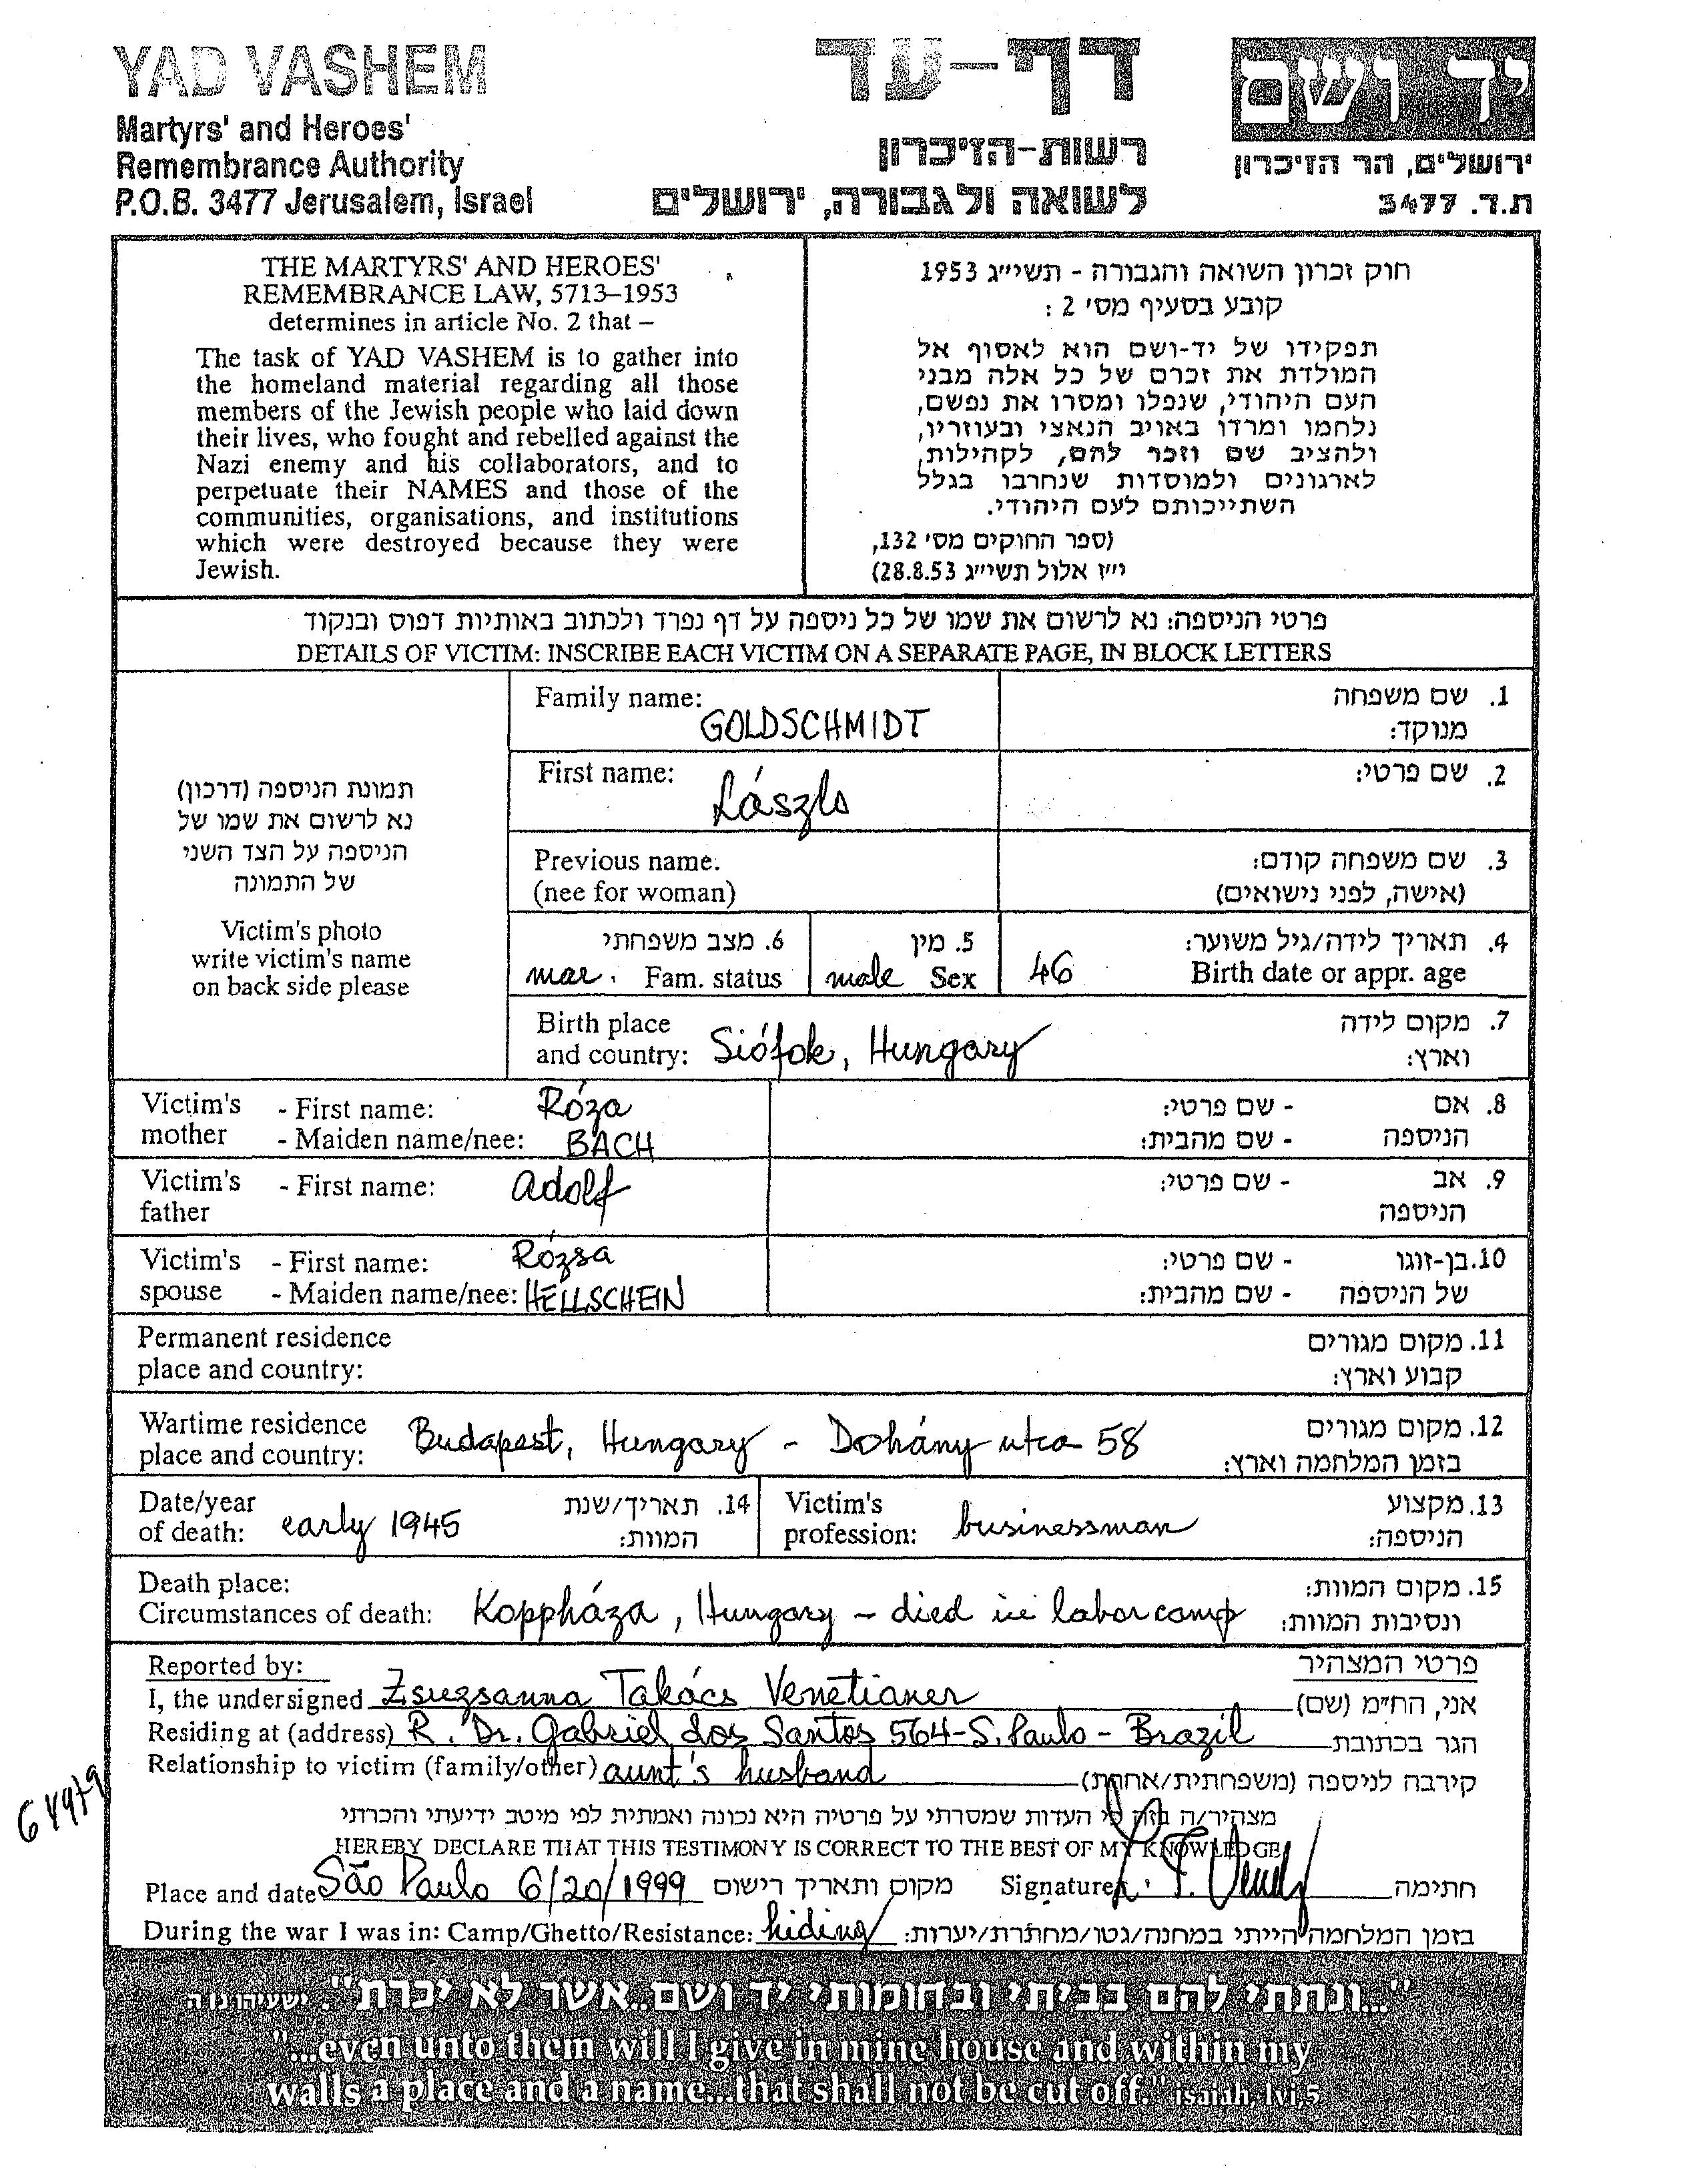 YAD VASHEM
Martyrs' and Heroes'
Remembrance Authority
P.O.B. 3477 Jerusalem, Israel
דף-עד
רשות-הזיכרון
לשואה ולגבורה, ירושלים
יד ושם
ירושלים, הר הזיכרון
ת.ד. 3477
THE MARTYRS' AND HEROES'
REMEMBRANCE LAW, 5713–1953
determines in article No. 2 that –
The task of YAD VASHEM is to gather into
the homeland material regarding all those
members of the Jewish people who laid down
their lives, who fought and rebelled against the
Nazi enemy and his collaborators, and to
perpetuate their NAMES and those of the
communities, organisations, and institutions
which were destroyed because they were
Jewish.
חוק זכרון השואה והגבורה - תשי״ג 1953
קובע בסעיף מס׳ 2 :
תפקידו של יד-ושם הוא לאסוף אל
המולדת את זכרם של כל אלה מבני
העם היהודי, שנפלו ומסרו את נפשם,
נלחמו ומרדו באויב הנאצי ובעוזריו,
ולהציב שם וזכר להם, לקהילות,
לארגונים ולמוסדות שנחרבו בגלל
השתייכותם לעם היהודי.
(ספר החוקים מס׳ 132,
י״ז אלול תשי״ג 28.8.53)
פרטי הניספה: נא לרשום את שמו של כל ניספה על דף נפרד ולכתוב באותיות דפוס ובנקוד
DETAILS OF VICTIM: INSCRIBE EACH VICTIM ON A SEPARATE PAGE, IN BLOCK LETTERS
תמונת הניספה (דרכון)
נא לרשום את שמו של
הניספה על הצד השני
של התמונה
Victim's photo
write victim's name
on back side please
Family name: GOLDSCHMIDT 1. שם משפחה
מנוקד:
First name: Lászlo 2. שם פרטי:
Previous name. 3. שם משפחה קודם:
(nee for woman) (אישה, לפני נישואים)
6. מצב משפחתי 5. מין 4. תאריך לידה/גיל משוער:
mar. Fam. status male Sex 46 Birth date or appr. age
Birth place 7. מקום לידה
and country: Siófok, Hungary וארץ:
Victim's - First name: Róza - שם פרטי: 8. אם
mother - Maiden name/nee: BACH - שם מהבית: הניספה
Victim's - First name: Adolf - שם פרטי: 9. אב
father הניספה
Victim's - First name: Rózsa - שם פרטי: 10. בן-זוגו
spouse - Maiden name/nee: HELLSCHEIN - שם מהבית: של הניספה
Permanent residence 11. מקום מגורים
place and country: קבוע וארץ:
Wartime residence 12. מקום מגורים
place and country: Budapest, Hungary - Dohány utca 58 בזמן המלחמה וארץ:
Date/year 14. תאריך/שנת Victim's 13. מקצוע
of death: early 1945 המוות: profession: businessman הניספה:
Death place: 15. מקום המוות:
Circumstances of death: Koppháza, Hungary - died in labor camp ונסיבות המוות:
Reported by: פרטי המצהיר
I, the undersigned Zsuzsanna Takács Venetianer אני, הח״מ (שם)
Residing at (address) R. Dr. Gabriel dos Santos 564-S. Paulo - Brazil הגר בכתובת
Relationship to victim (family/other) aunt's husband קירבה לניספה (משפחתית/אחרת)
64479
מצהיר/ה בזה כי העדות שמסרתי על פרטיה היא נכונה ואמתית לפי מיטב ידיעתי והכרתי
HEREBY DECLARE THAT THIS TESTIMONY IS CORRECT TO THE BEST OF MY KNOWLEDGE
Place and date São Paulo 6/20/1999 מקום ותאריך רישום Signature חתימה
During the war I was in: Camp/Ghetto/Resistance: hiding בזמן המלחמה הייתי במחנה/גטו/מחתרת/יערות:
"...ונתתי להם בביתי ובחומותי יד ושם..אשר לא יכרת". ישעיהו נו ה
"...even unto them will I give in mine house and within my
walls a place and a name...that shall not be cut off." isaiah, lvi,5